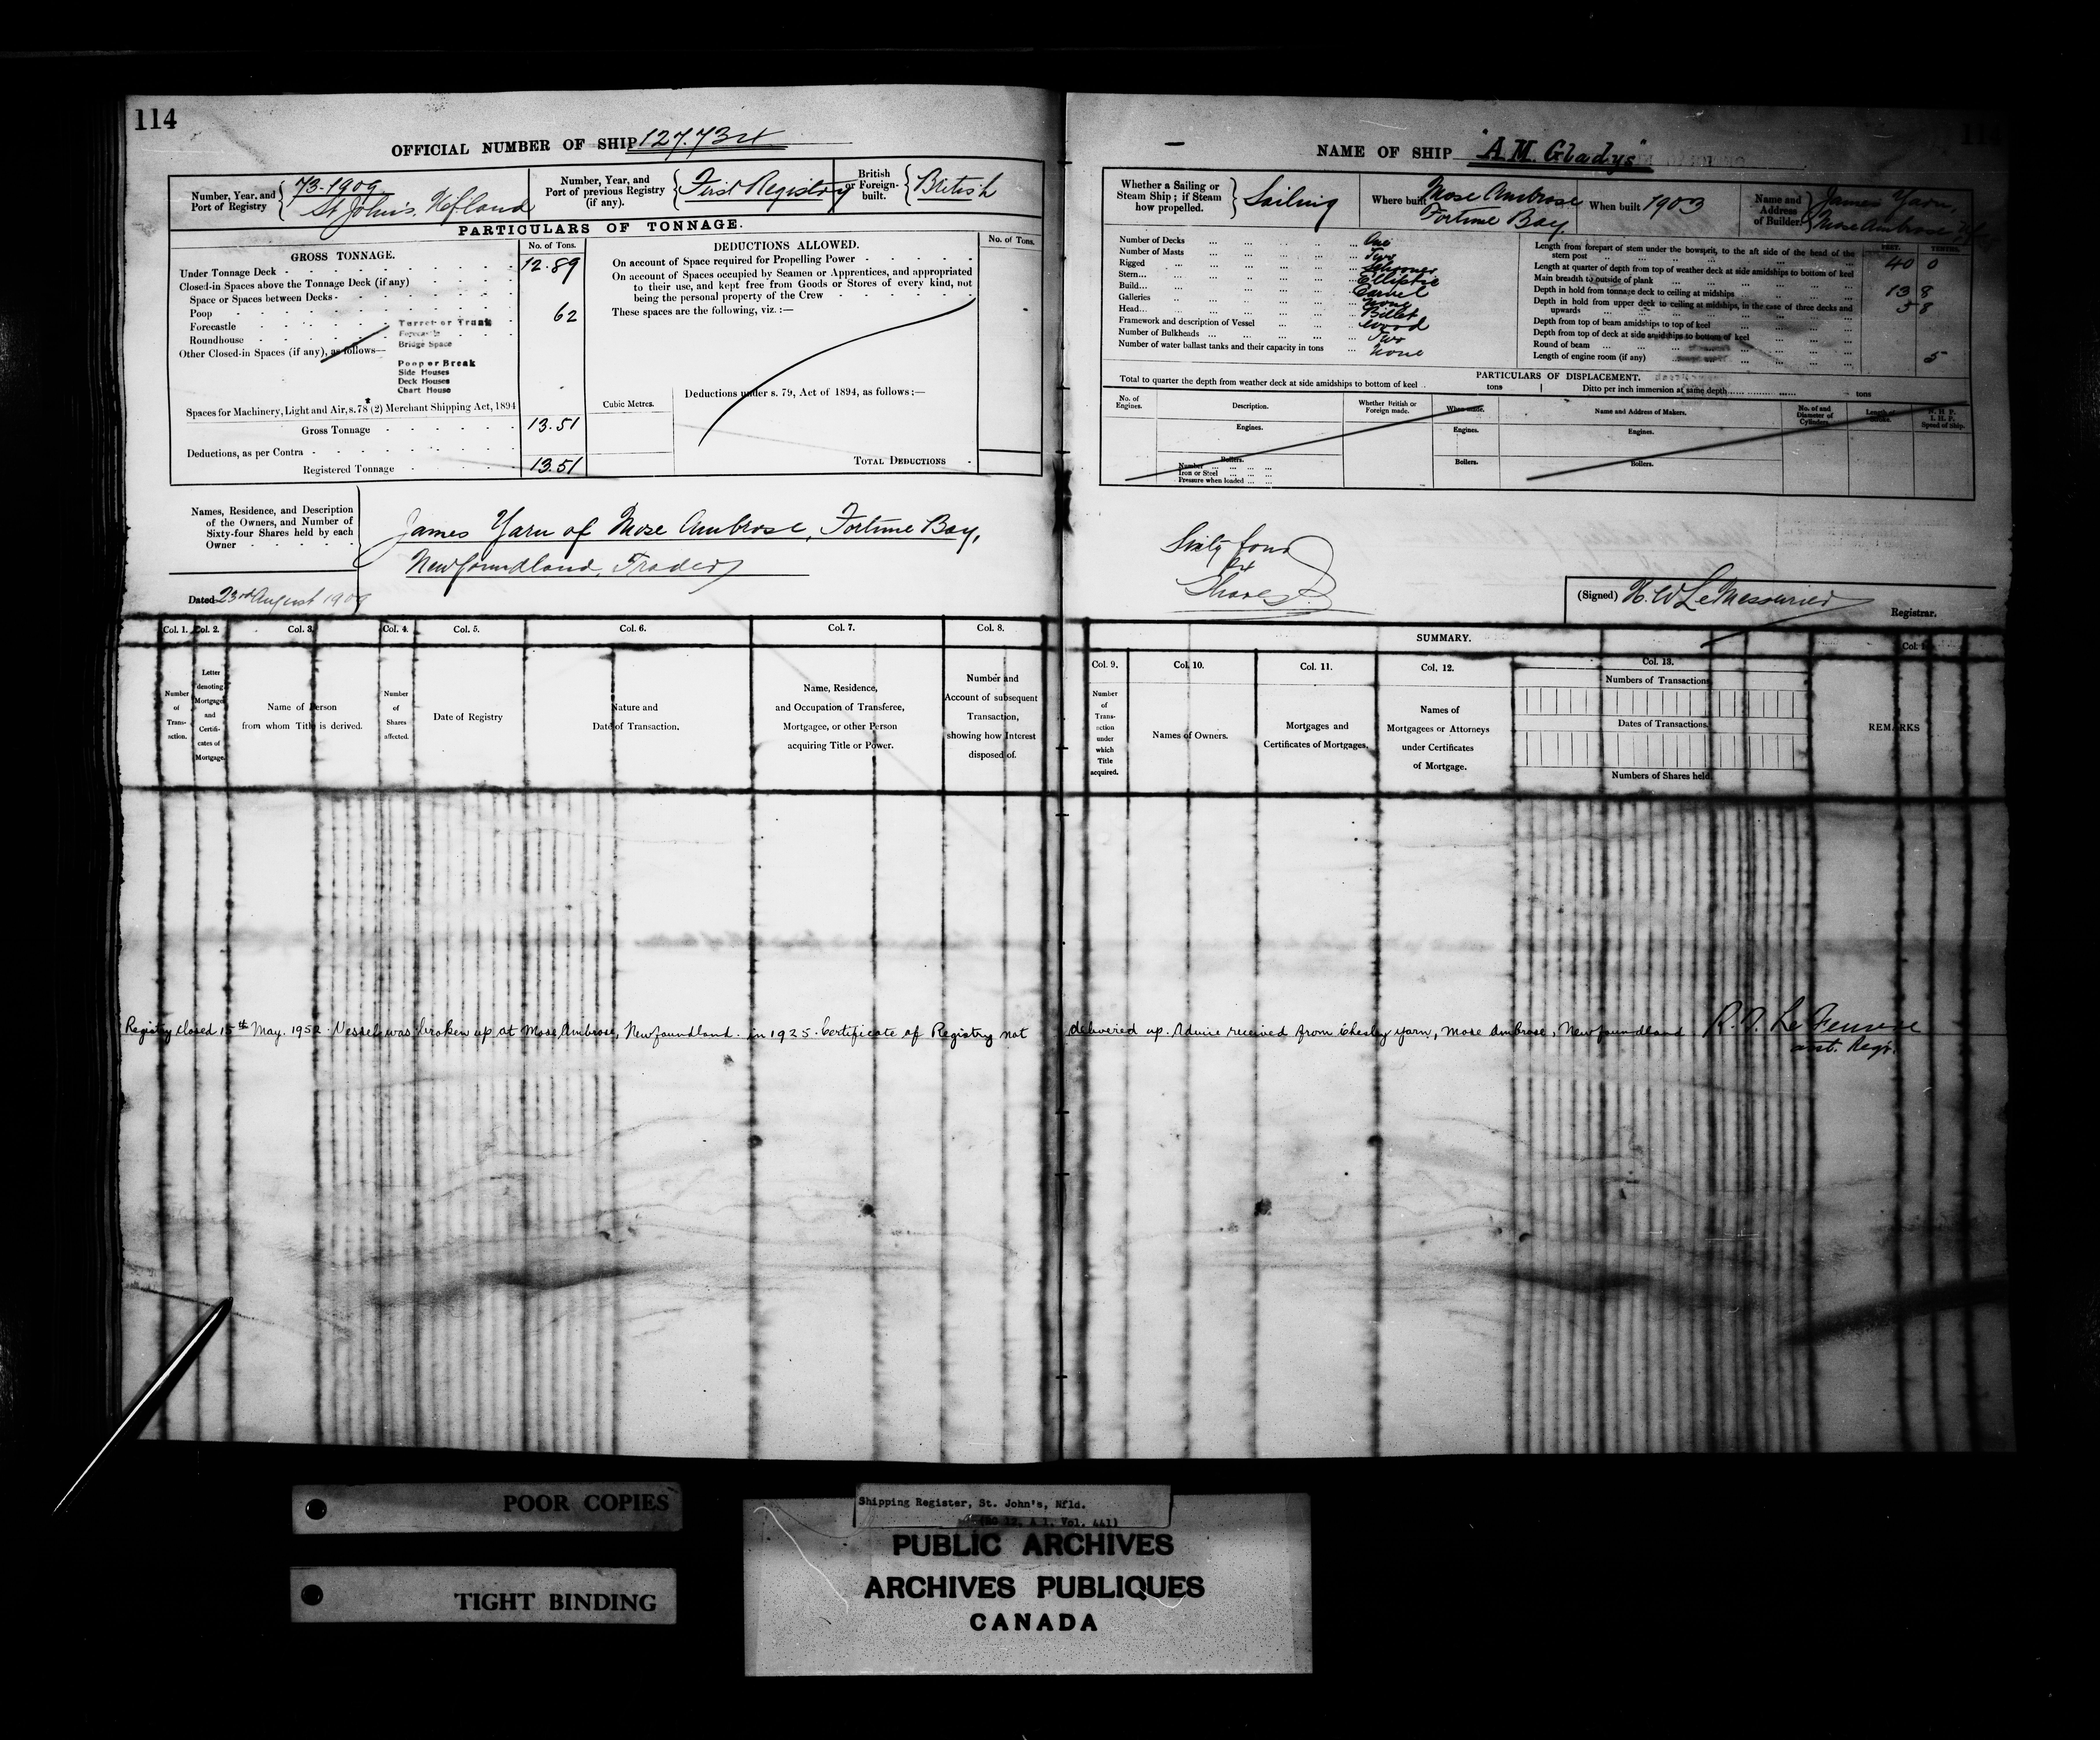 114
OFFICIAL NUMBER OF SHIP 127.734
Number, Year, and Port of Registry
73-1909
St John's. Nfland
Number, Year, and Port of previous Registry (if any).
First Registry
British or Foreign-built.
British
PARTICULARS OF TONNAGE.
GROSS TONNAGE.
No. of Tons.
Under Tonnage Deck 12.89
Closed-in Spaces above the Tonnage Deck (if any)
Space or Spaces between Decks
Poop 62
Forecastle
Roundhouse
Other Closed-in Spaces (if any), as follows—
Turret or Trunk
Forecastle
Bridge Space
Poop or Break
Side Houses
Deck Houses
Chart House
Spaces for Machinery, Light and Air, s. 78 (2) Merchant Shipping Act, 1894
Gross Tonnage 13.51
Deductions, as per Contra
Registered Tonnage 13.51
DEDUCTIONS ALLOWED.
No. of Tons.
On account of Space required for Propelling Power
On account of Spaces occupied by Seamen or Apprentices, and appropriated
to their use, and kept free from Goods or Stores of every kind, not
being the personal property of the Crew
These spaces are the following, viz. :—
Cubic Metres.
Deductions under s. 79, Act of 1894, as follows :—
TOTAL DEDUCTIONS
Names, Residence, and Description
of the Owners, and Number of
Sixty-four Shares held by each
Owner
James Yarn of Mose Ambrose, Fortune Bay,
Newfoundland, Trader
Dated 23rd August 1909
Col. 1. Col. 2. Col. 3. Col. 4. Col. 5. Col. 6. Col. 7. Col. 8.
Number of Trans-action.
Letter denoting Mortgage and Certifi-cates of Mortgage.
Name of Person from whom Title is derived.
Number of Shares affected.
Date of Registry
Nature and Date of Transaction.
Name, Residence, and Occupation of Transferee, Mortgagee, or other Person acquiring Title or Power.
Number and Account of subsequent Transaction, showing how Interest disposed of.
NAME OF SHIP "A.M. Gladys"
Whether a Sailing or Steam Ship; if Steam how propelled.
Sailing
Where built Mose Ambrose
Fortune Bay
When built 1903
Name and Address of Builder.
James Yarn,
Mose Ambrose
Number of Decks One
Number of Masts Two
Rigged Schooner
Stern Elliptic
Build Carvel
Galleries None
Head Billet
Framework and description of Vessel Wood
Number of Bulkheads Two
Number of water ballast tanks and their capacity in tons None
FEET. TENTHS.
Length from forepart of stem under the bowsprit, to the aft side of the head of the stern post 40 0
Length at quarter of depth from top of weather deck at side amidships to bottom of keel
Main breadth to outside of plank 13 8
Depth in hold from tonnage deck to ceiling at midships 5 8
Depth in hold from upper deck to ceiling at midships, in the case of three decks and upwards
Depth from top of beam amidships to top of keel
Depth from top of deck at side amidships to bottom of keel
Round of beam 5
Length of engine room (if any)
PARTICULARS OF DISPLACEMENT.
Total to quarter the depth from weather deck at side amidships to bottom of keel tons
Ditto per inch immersion at same depth tons
No. of Engines.
Description.
Whether British or Foreign made.
When made.
Name and Address of Makers.
No. of and Diameter of Cylinders.
Length of Stroke.
N. H. P.
I. H. P.
Speed of Ship.
Engines.
Engines.
Engines.
Boilers.
Number
Iron or Steel
Pressure when loaded
Boilers.
Boilers.
Sixty four
64
Shares.
(Signed) H. W. LeMessurier
Registrar.
SUMMARY.
Col. 9. Col. 10. Col. 11. Col. 12. Col. 13.
Number of Trans-action under which Title acquired.
Names of Owners.
Mortgages and Certificates of Mortgages.
Names of Mortgagees or Attorneys under Certificates of Mortgage.
Numbers of Transactions.
Dates of Transactions.
Numbers of Shares held.
REMARKS
Registry closed 15th May. 1952. Vessel was broken up at Mose Ambrose, Newfoundland. in 1925. Certificate of Registry not delivered up. Advice received from Chesley Yarn, Mose Ambrose, Newfoundland.
asst. Regr.
POOR COPIES
TIGHT BINDING
Shipping Register, St. John's, Nfld.
(RG 12, A 1, Vol. 441)
PUBLIC ARCHIVES
ARCHIVES PUBLIQUES
CANADA